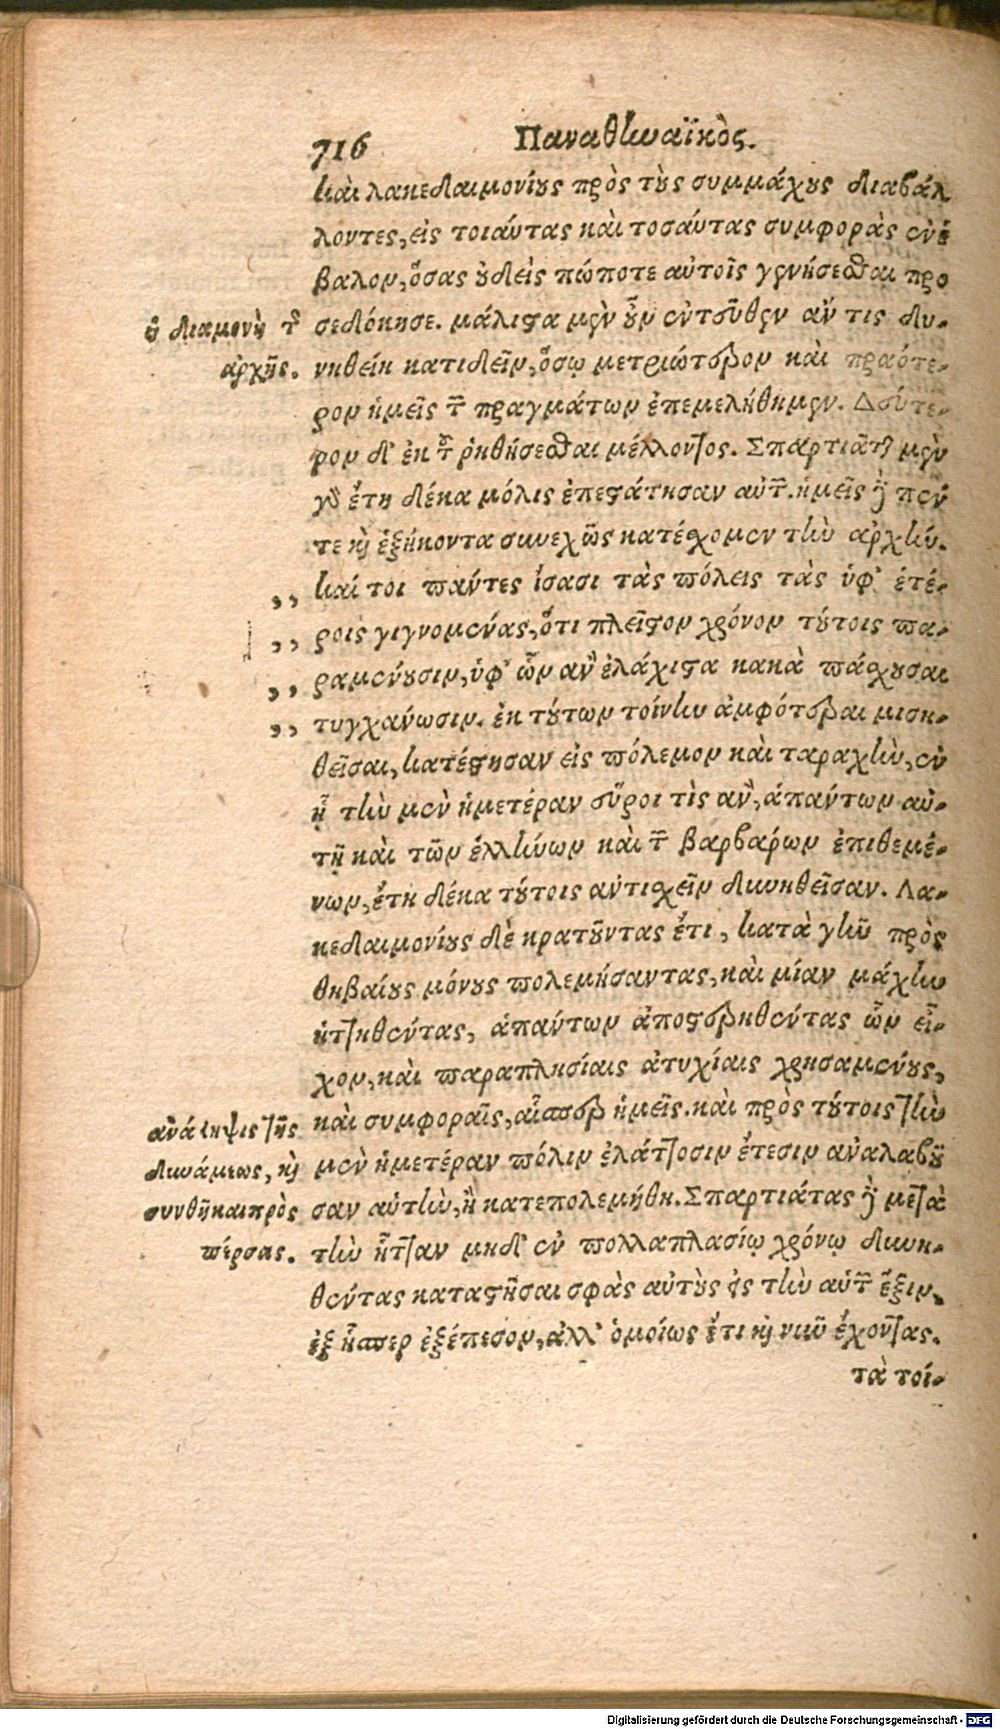 716 Παναθηναϊκὸς.
καὶ λακεδαιμονίους πρὸς τοὺς συμμάχους διαβάλ
λοντες, εἰς τοιαύτας καὶ τοσαύτας συμφορὰς ἐνέ
βαλον, ὅσας οὐδεὶς πώποτε αὐτοῖς γενήσεσθαι προ
ἡ διαμονὴ τῆς
σεδόκησε. μάλιστα μὲν οὖν ἐντεῦθεν ἄν τις δυ-
ἀρχῆς.
νηθείη κατιδεῖν, ὅσῳ μετριώτερον καὶ πραότε-
ρον ἡμεῖς τῶν πραγμάτων ἐπεμελήθημεν. Δεύτε-
ρον δ' ἐκ τοῦ ῥηθήσεσθαι μέλλοντος. Σπαρτιᾶται μὲν
γὰρ ἔτη δέκα μόλις ἐπεστάτησαν αὐτῶν. ἡμεῖς δὲ πέν
τε καὶ ἑξήκοντα συνεχῶς κατέχομεν τὴν ἀρχήν.
,, καί τοι πάντες ἴσασι τὰς πόλεις τὰς ὑφ' ἑτέ-
,, ροις γιγνομένας, ὅτι πλεῖστον χρόνον τούτοις πα-
,, ραμένουσιν, ὑφ' ὧν ἂν ἐλάχιστα κακὰ πάσχουσαι
,, τυγχάνωσιν. ἐκ τούτων τοίνυν ἀμφότεραι μιση-
θεῖσαι, κατέστησαν εἰς πόλεμον καὶ ταραχὴν, ἐν
ᾗ τὴν μὲν ἡμετέραν εὕροι τὶς ἂν, ἁπάντων αὐ-
τῇ καὶ τῶν ἑλλήνων καὶ τῶν βαρβάρων ἐπιθεμέ-
νων, ἔτη δέκα τούτοις ἀντισχεῖν δυνηθεῖσαν. Λα-
κεδαιμονίους δὲ κρατοῦντας ἔτι, κατὰ γῆν πρὸς
θηβαίους μόνους πολεμήσαντας, καὶ μίαν μάχην
ἡττηθέντας, ἁπάντων ἀποστερηθέντας ὧν εἶ-
χον, καὶ παραπλησίαις ἀτυχίαις χρησαμένους,
καὶ συμφοραῖς, αἷσπερ ἡμεῖς. καὶ πρὸς τούτοις τὴν
ἀνάληψις τῆς
δυνάμεως, καὶ
συνθῆκαι πρὸς
πέρσας.
μὲν ἡμετέραν πόλιν ἐλάττοσιν ἔτεσιν ἀναλαβοῦ
σαν αὑτὴν, ἢ κατεπολεμήθη. Σπαρτιάτας δὲ μετὰ
τὴν ἧτταν μηδ' ἐν πολλαπλασίῳ χρόνῳ δυνη-
θέντας καταστῆσαι σφὰς αὐτοὺς εἰς τὴν αὐτὴν ἕξιν,
ἐξ ἧσπερ ἐξέπεσον, ἀλλ' ὁμοίως ἔτι καὶ νῦν ἔχοντας.
τὰ τοί-
Digitalisierung gefördert durch die Deutsche Forschungsgemeinschaft - DFG